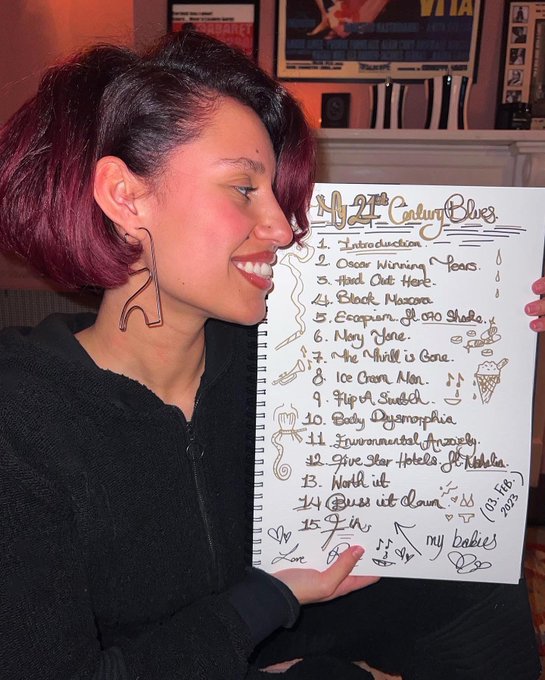 CABARET
VITA
My 21st Century Blues.
1. Introduction
2. Oscar Winning Tears.
3. Hard Out Here.
4. Black Mascara
5. Escapism. ft. 070 Shake.
6. Mary Jane.
7. The Thrill is Gone.
8. Ice Cream Man.
9. Flip A Switch.
10. Body Dysmorphia
11. Environmental Anxiety.
12. Five Star Hotels. ft. Mahalia.
13. Worth it
14. Buss it down.
15. Fin.
(03. FEB. 2023)
my babies
Love